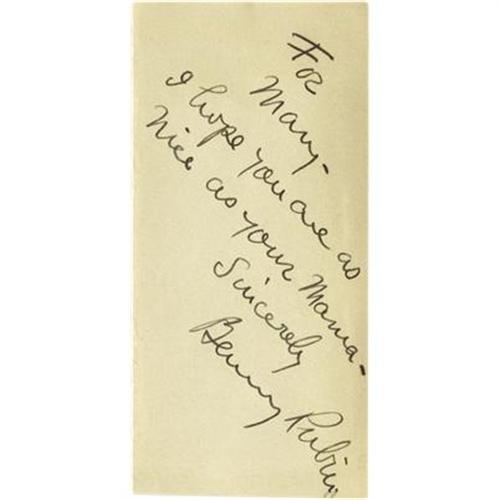 For
Mary-
I hope you are as
nice as your Mama-
Sincerely
Benny Rubin